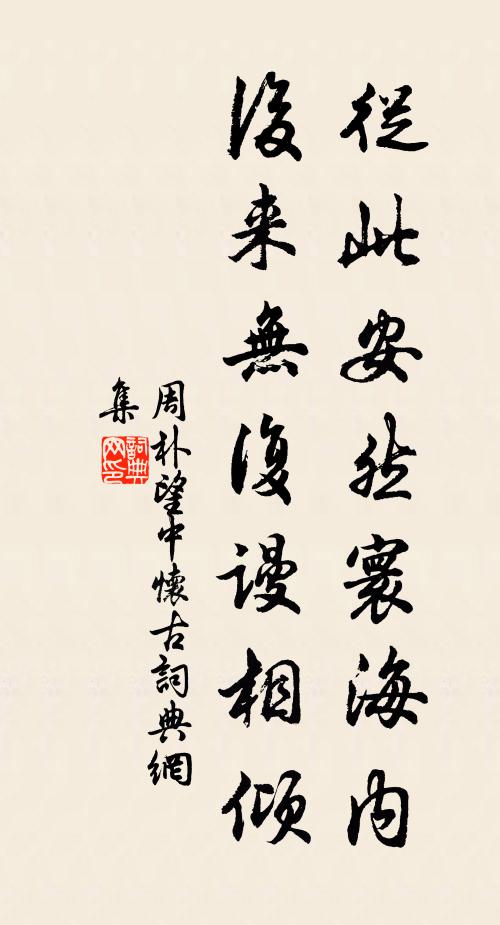 從此安然寰海內
後来無復謾相傾
周朴望中懷古詞典網
集
詞典网印